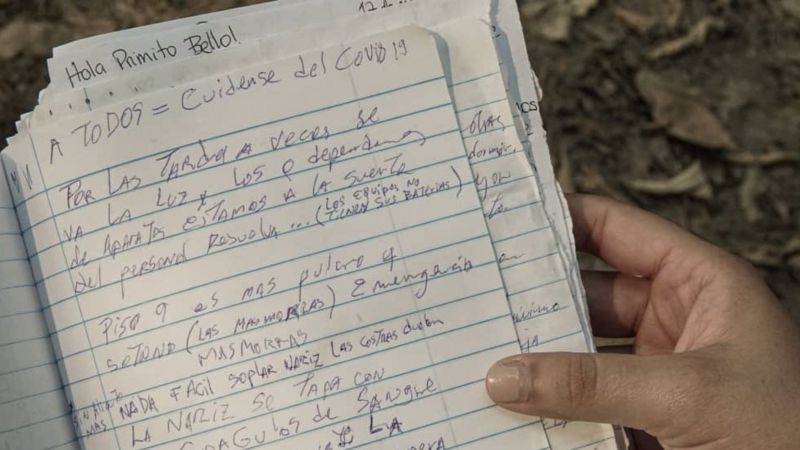 12 de
Hola Primito Bello!
A TODOS = Cuidense del COVID 19
POR LAS TARDES A VECES SE
VA LA LUZ y LOS Q dependemos
de APARATOS ESTAMOS A LA SUERTE
del personal Resuelva... (LOS EQUIPOS NO
TIENEN SUS BATERIAS)
PISO 9 es MAS pulcro q
SOTANO (LAS MASMORRAS) Emergencia
MASMORRAS
MAS NADA FACIL SOPLAR NARIZ LAS COSTRAS duelen
LA NARIZ SE TAPA CON
COAGULOS de SANGRE
LA
otras
dormir
LOS